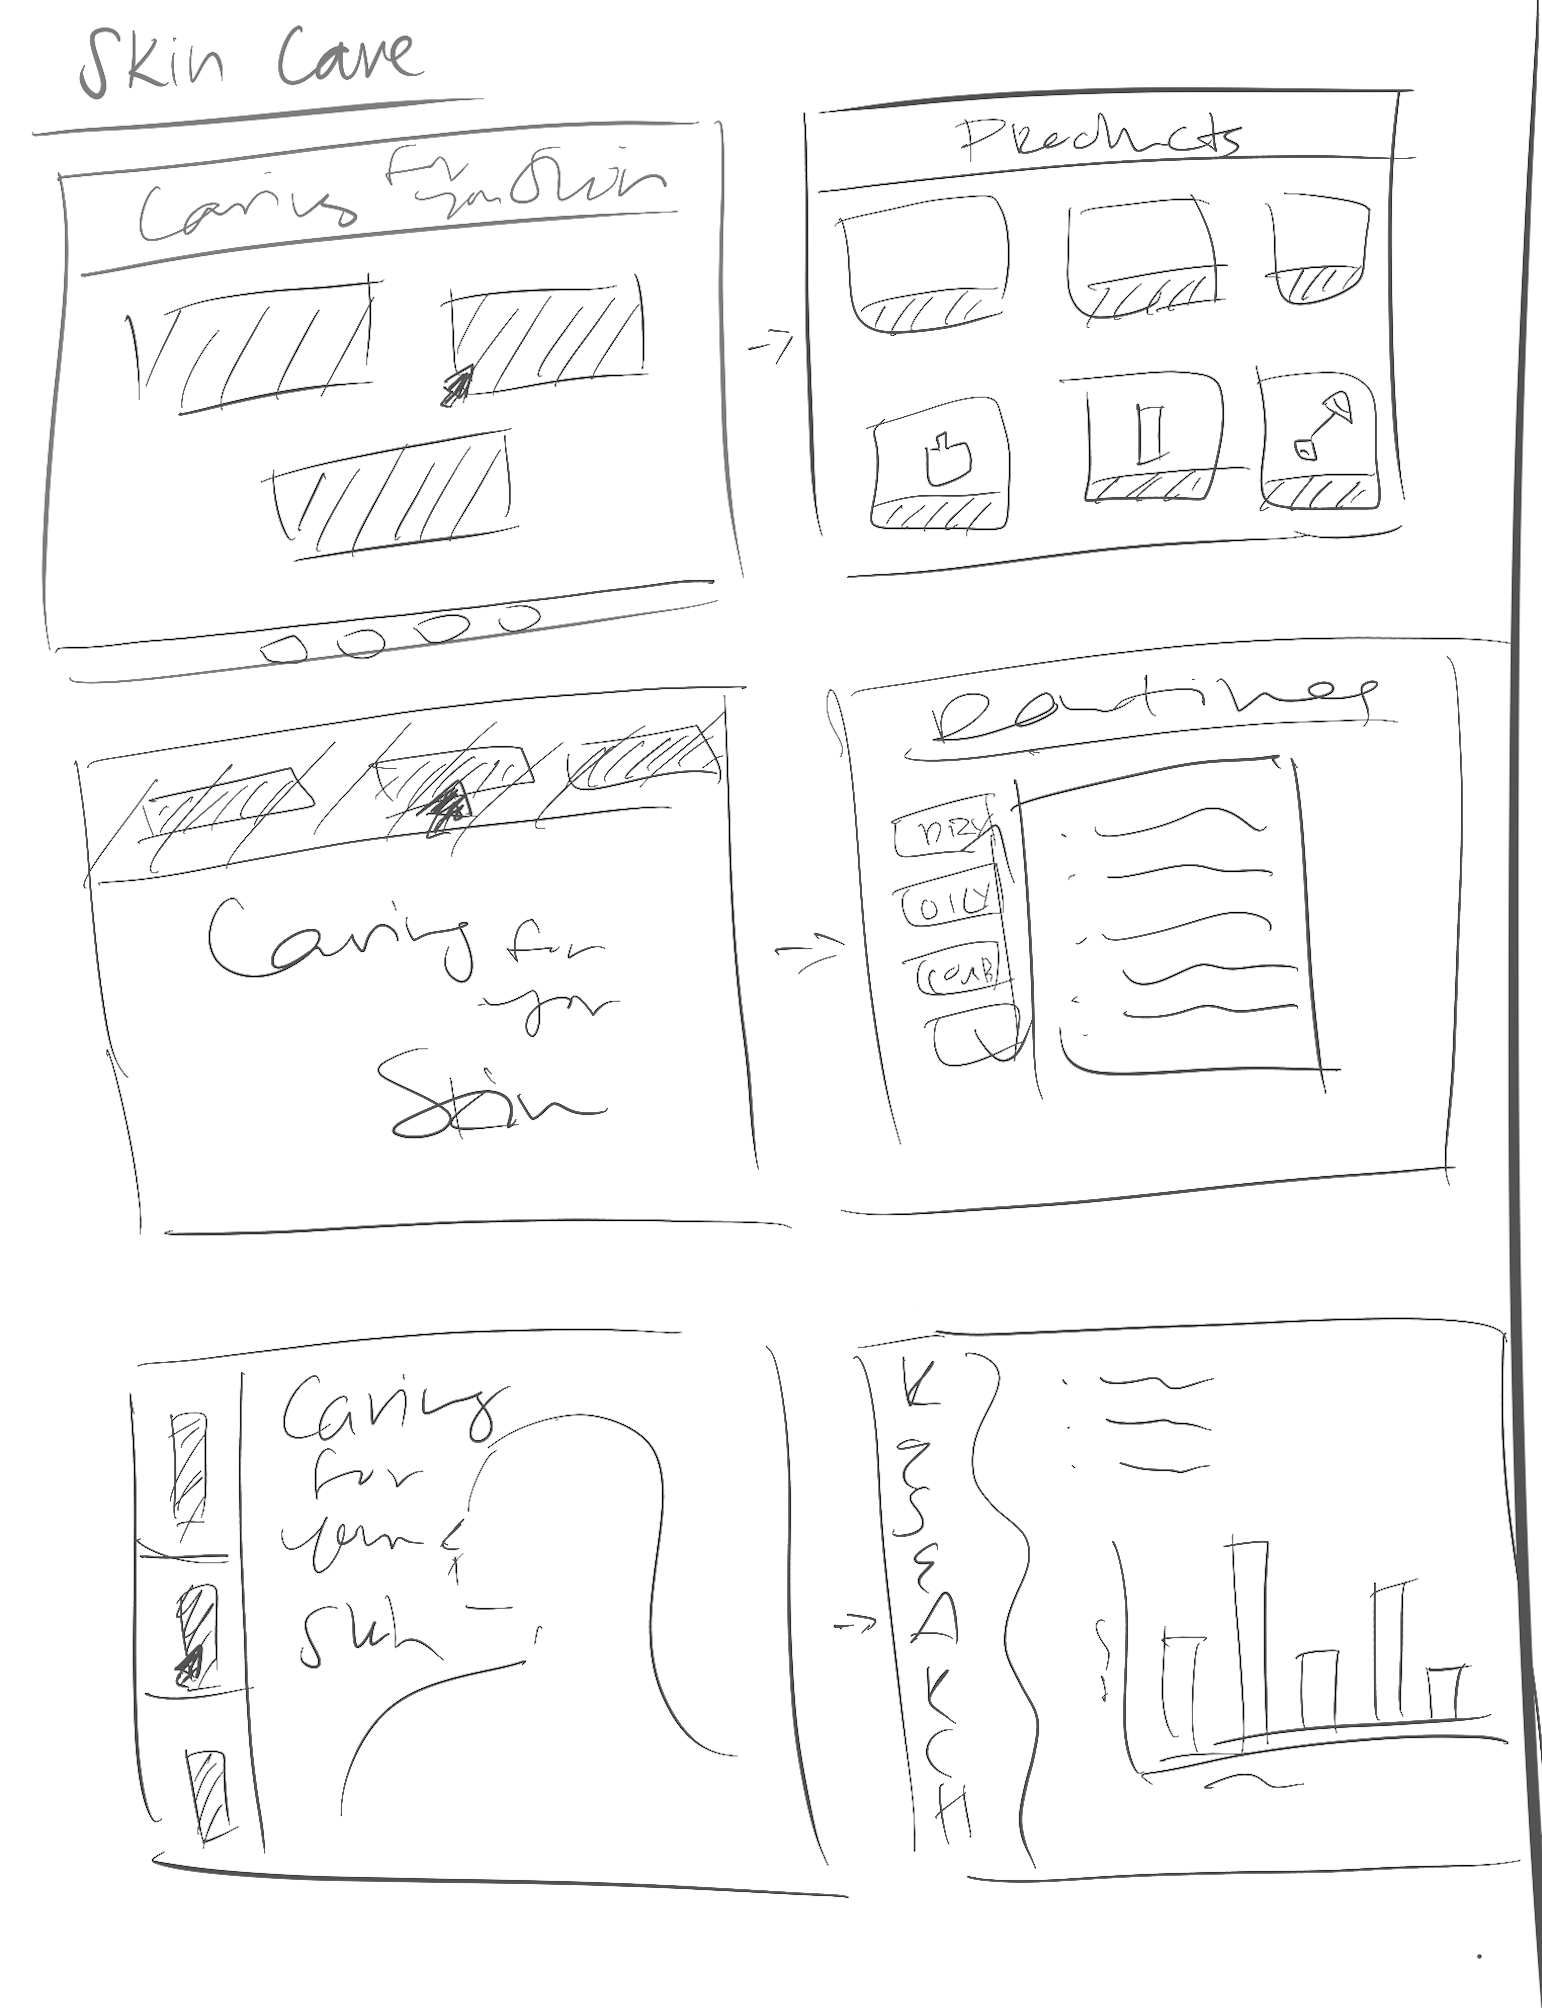 Skin Care
Caring for your Skin
Products
Caring for
your
Skin
Routines
DRY
OILY
COMB
Caring
for
your
Skin
R
e
s
e
A
R
C
H